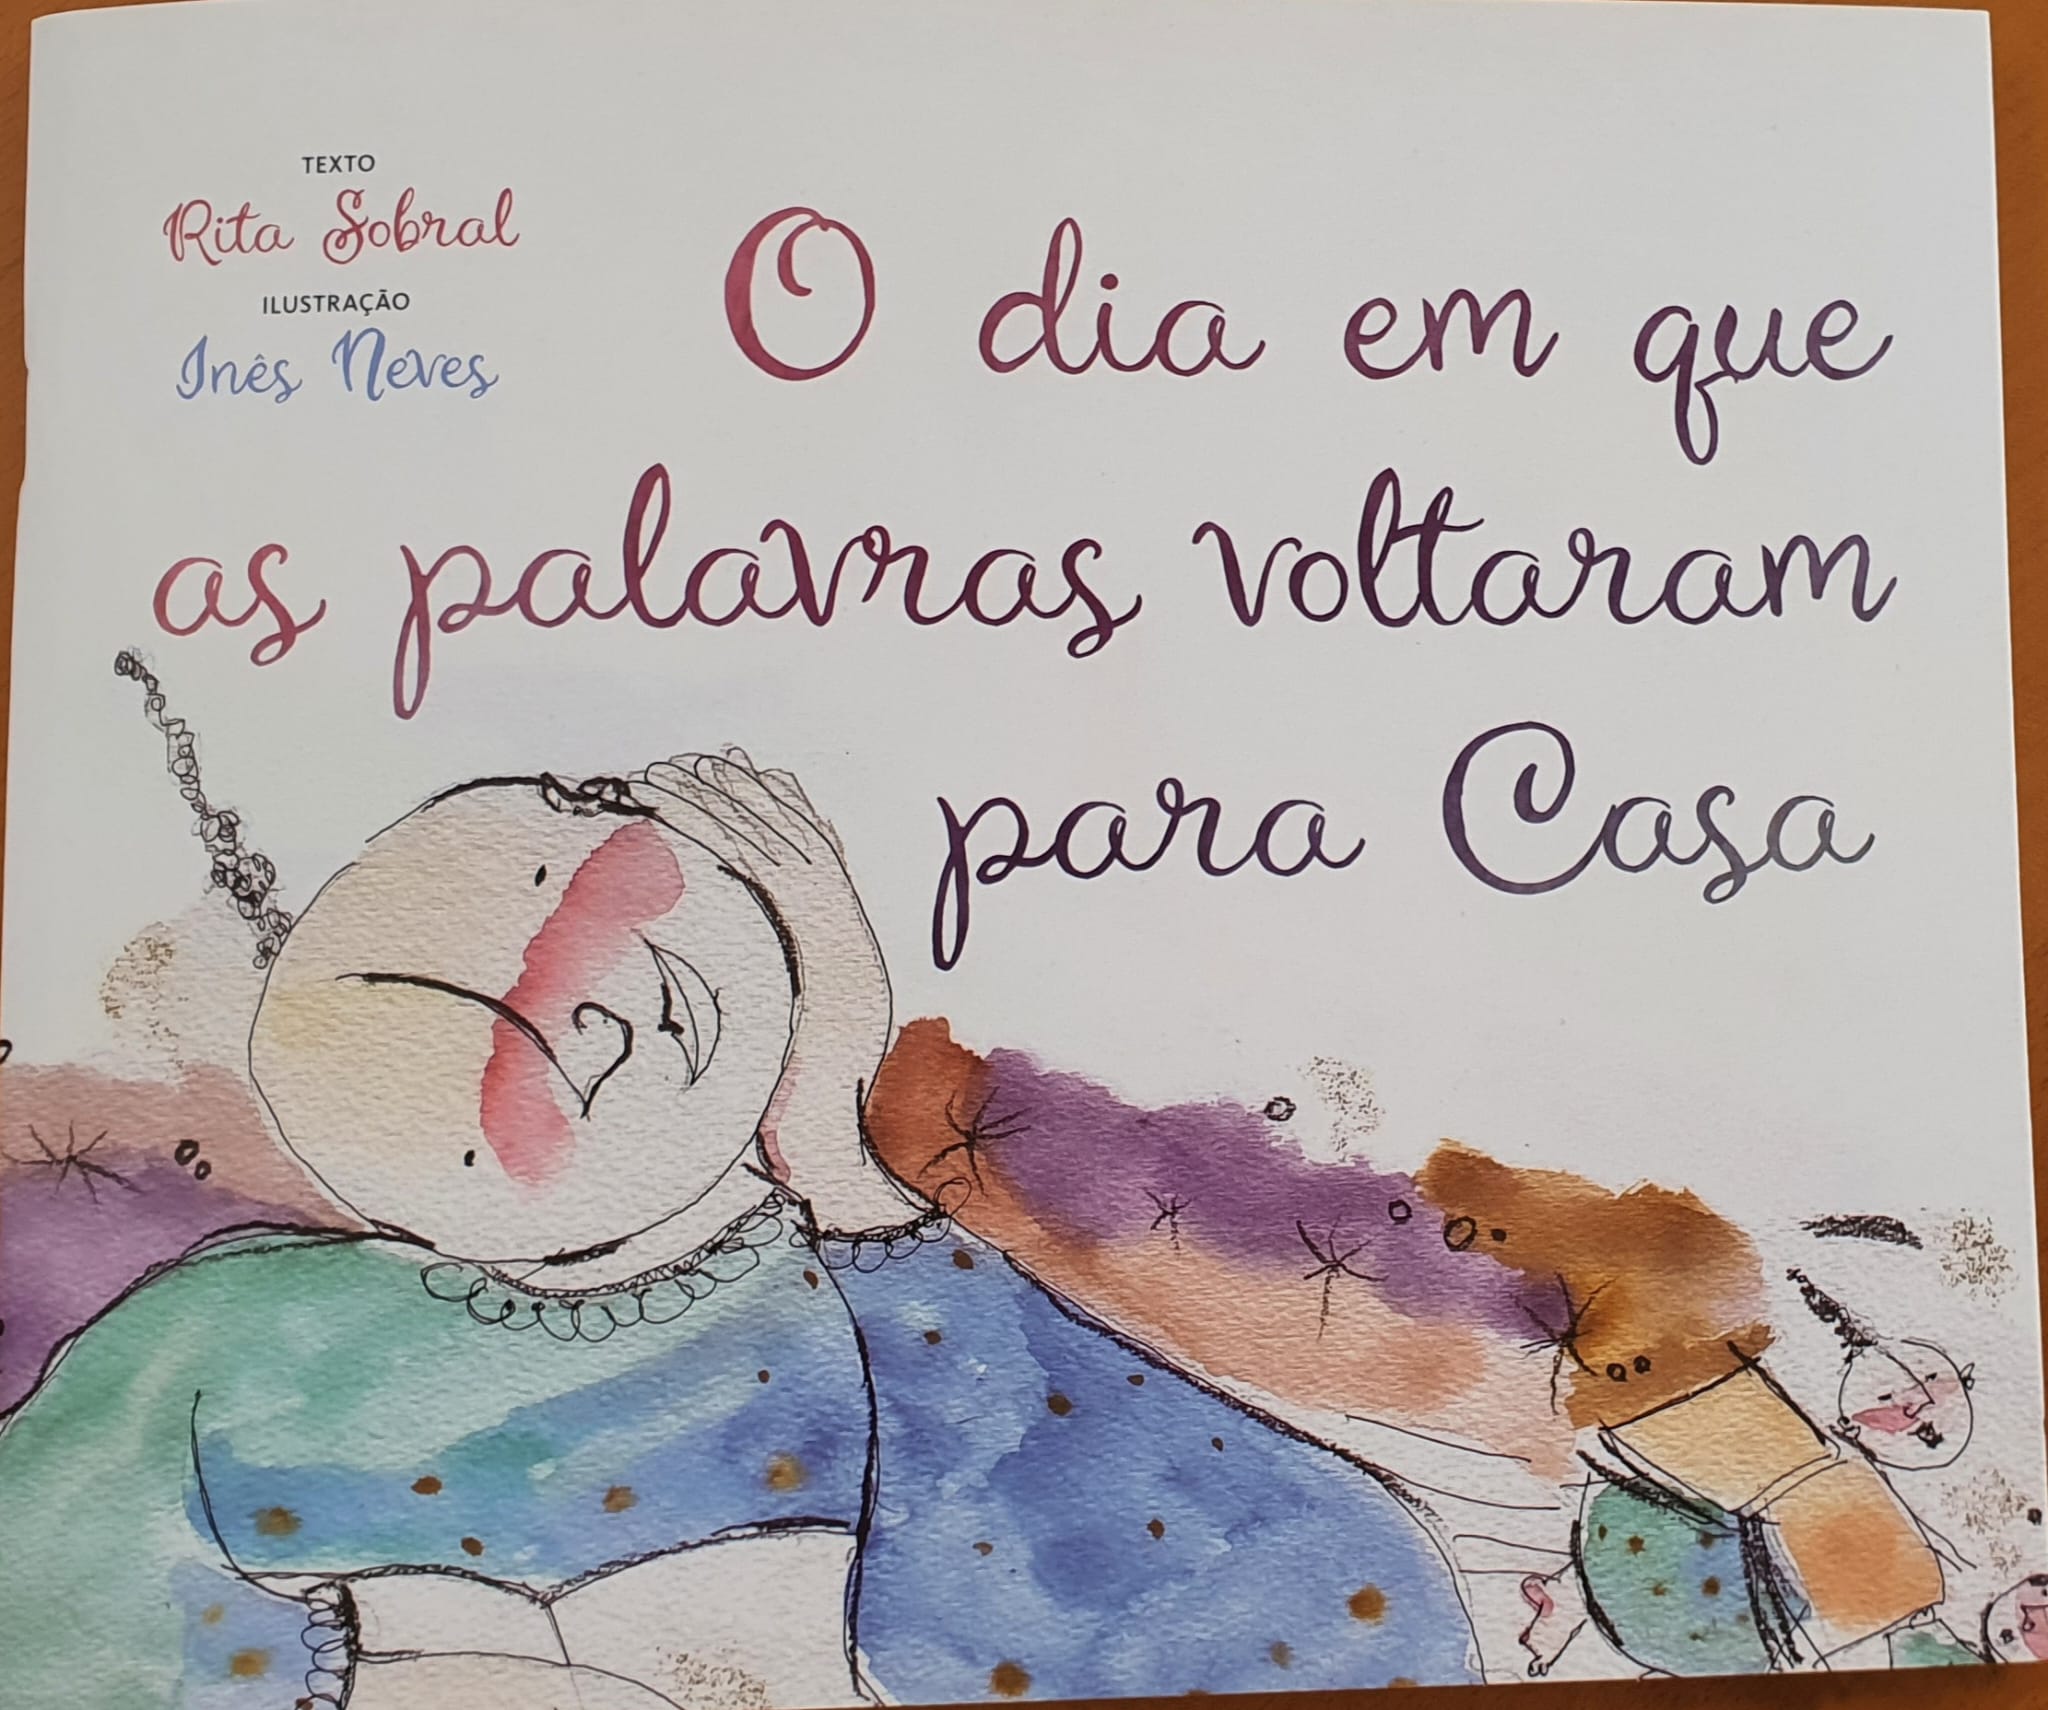 TEXTO
Rita Sobral
ILUSTRAÇÃO
Inês Neves
O dia em que
as palavras voltaram
para Casa